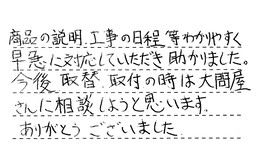 商品の説明、工事の日程、等わかりやすく
早急に対応していただき助かりました。
今後、取替、取付の時は大問屋
さんに相談しようと思います。
ありがとうございました